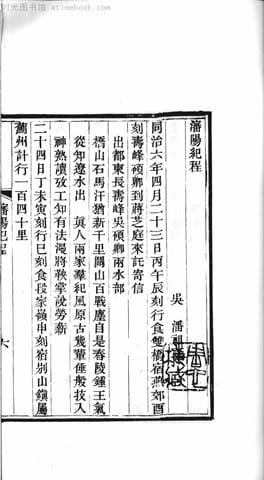 时光图书馆 atimebook.com
瀋陽紀程
吳 潘祖
同治六年四月二十三日丙午辰刻行食雙橋宿燕郊酉
刻壽峰碩卿到蔣芝庭來託寄信
出都東長壽峰吳碩卿兩水部
橋山石馬汗猶新千里關山百戰塵自是春陵鍾王氣
從知遼水出 眞人兩家羣紀風原古幾輩倕般技入
神熟讀攷工知有法漫將鞅掌說勞薪
二十四日丁未寅刻行巳刻食段家嶺申刻宿別山鎮屬
薊州計行一百四十里
瀋陽紀程